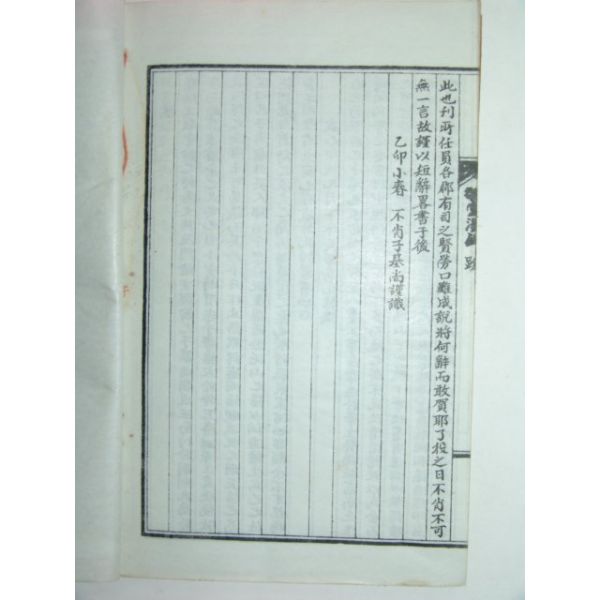 此也刊所任員各郡有司之賢勞口難成說將何辭而敢贊耶了役之日不肖不可
無一言故謹以短辭畧書于後
乙卯小春 不肖子基尚謹識
跋